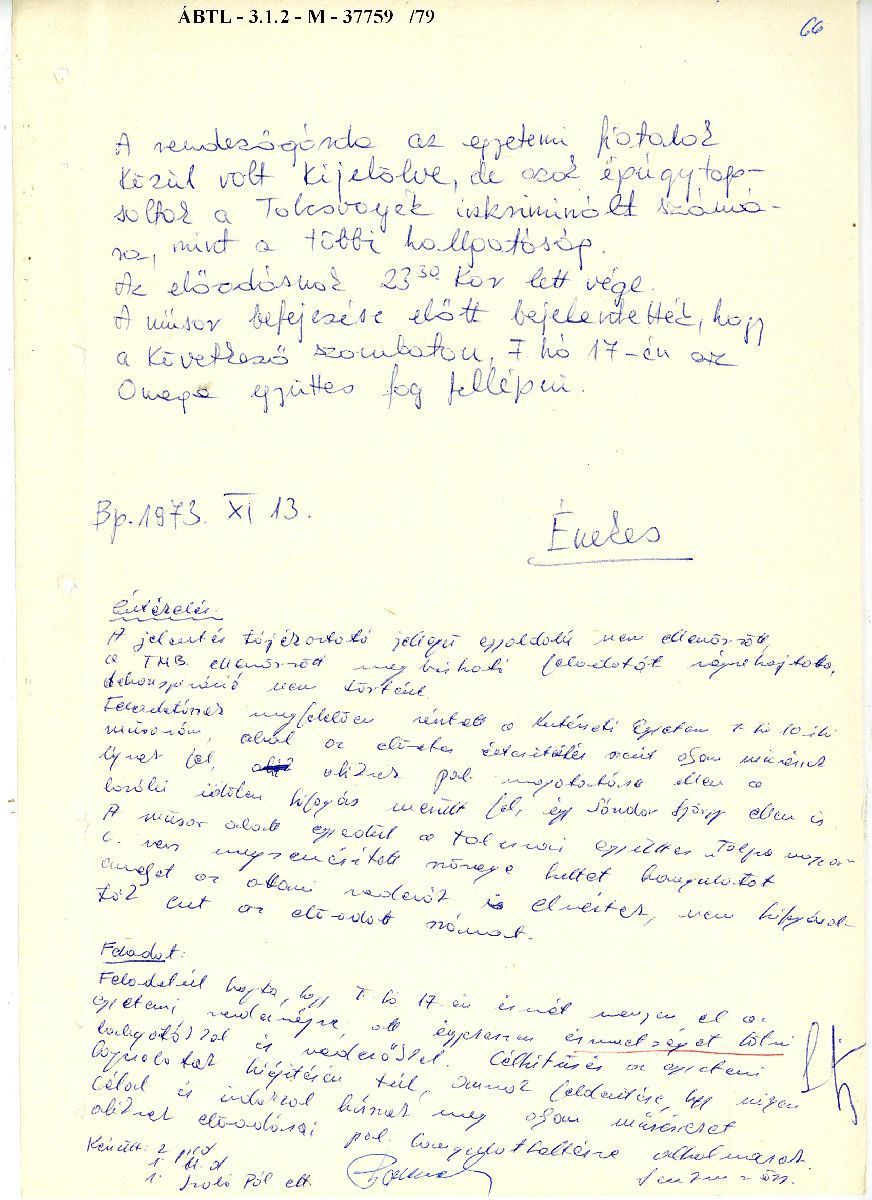 ÁBTL - 3.1.2 - M - 37759 /79
66
A rendezőgárda az egyetemi fiatalok
közül volt kijelölve, de azok épúgy tap-
soltak a Tolcsvayék inkriminált számá-
ra, mint a többi hallgatóság.
Az előadásnak 23 30 kor lett vége.
A műsor befejezése előtt bejelentették, hogy
a következő szombaton, F hó 17-én az
Omega együttes fog fellépni.
Bp. 1973. XI 13.
Énekes
Értékelés:
A jelentés tájékoztató jellegű egyoldalú nem ellenőrzött,
a TMB. ellenőrzött megbízható feladatát végrehajtotta,
dekonspiráció nem történt.
Feladatának megfelelően részt vett a Kertészeti Egyetem f. hó 10-iki
műsorán, ahol az előzetes értesülés szerint olyan művészek
lépnek fel, akiknek pol. magatartása ellen a
korábbi időben kifogás merült fel, így Sándor György ellen is
A műsor alatt egyedül a Tolcsvai együttes "Talpra magyar"
c. vers megzenésített szövege keltett hangulatot
amelyet az ottani rendezők is elnéztek, nem kifogásol-
ták ezt az előadott számot.
Feladat:
Feladatul kapta, hogy f. hó 17-én ismét menjen el az
egyetemi rendezvényre, ott igyekezzen ismeretséget kötni
hallgatókkal és rendezőkkel. Célkitűzés az egyetemi
kapcsolatok kiépítésén túl, annak felderítése, hogy milyen
céllal és indokkal hívnak meg olyan művészeket
akiknek előadásai pol. hangulatkeltésre alkalmasak.
Készült: 2 pld
1. M. d
1. Szabó Pál elt.